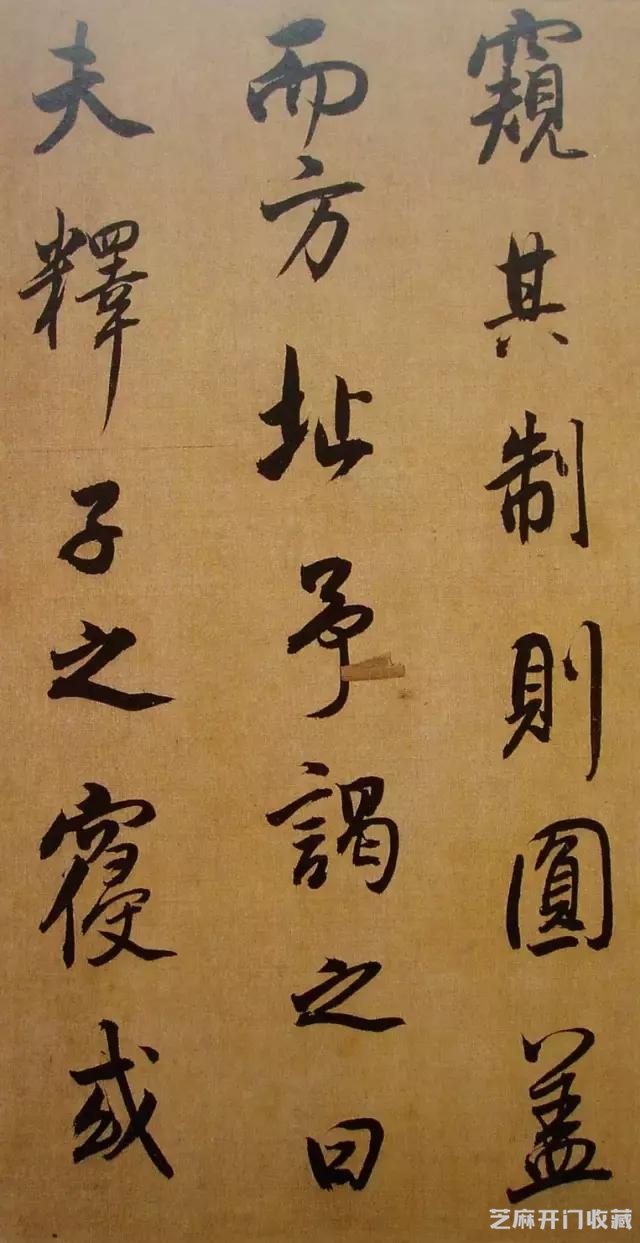 窺其制則圓蓋
而方址予謁之曰
夫釋子之寢或
芝麻开门收藏